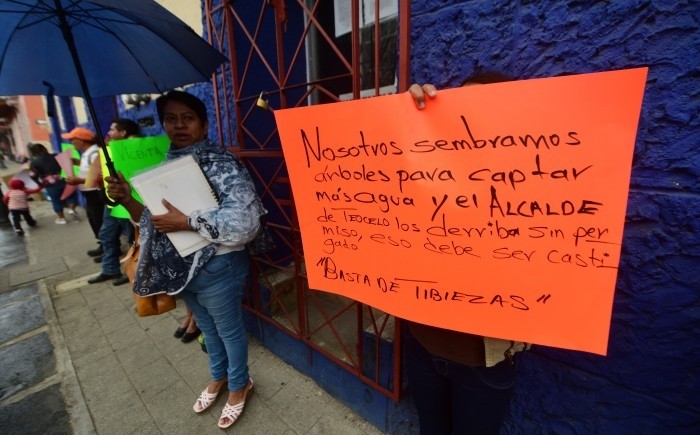 VICENTA
Nosotros sembramos
árboles para captar
más agua y el ALCALDE
de TEOCELO los derriba sin per
miso, eso debe ser casti
gado
"BASTA DE TIBIEZAS"